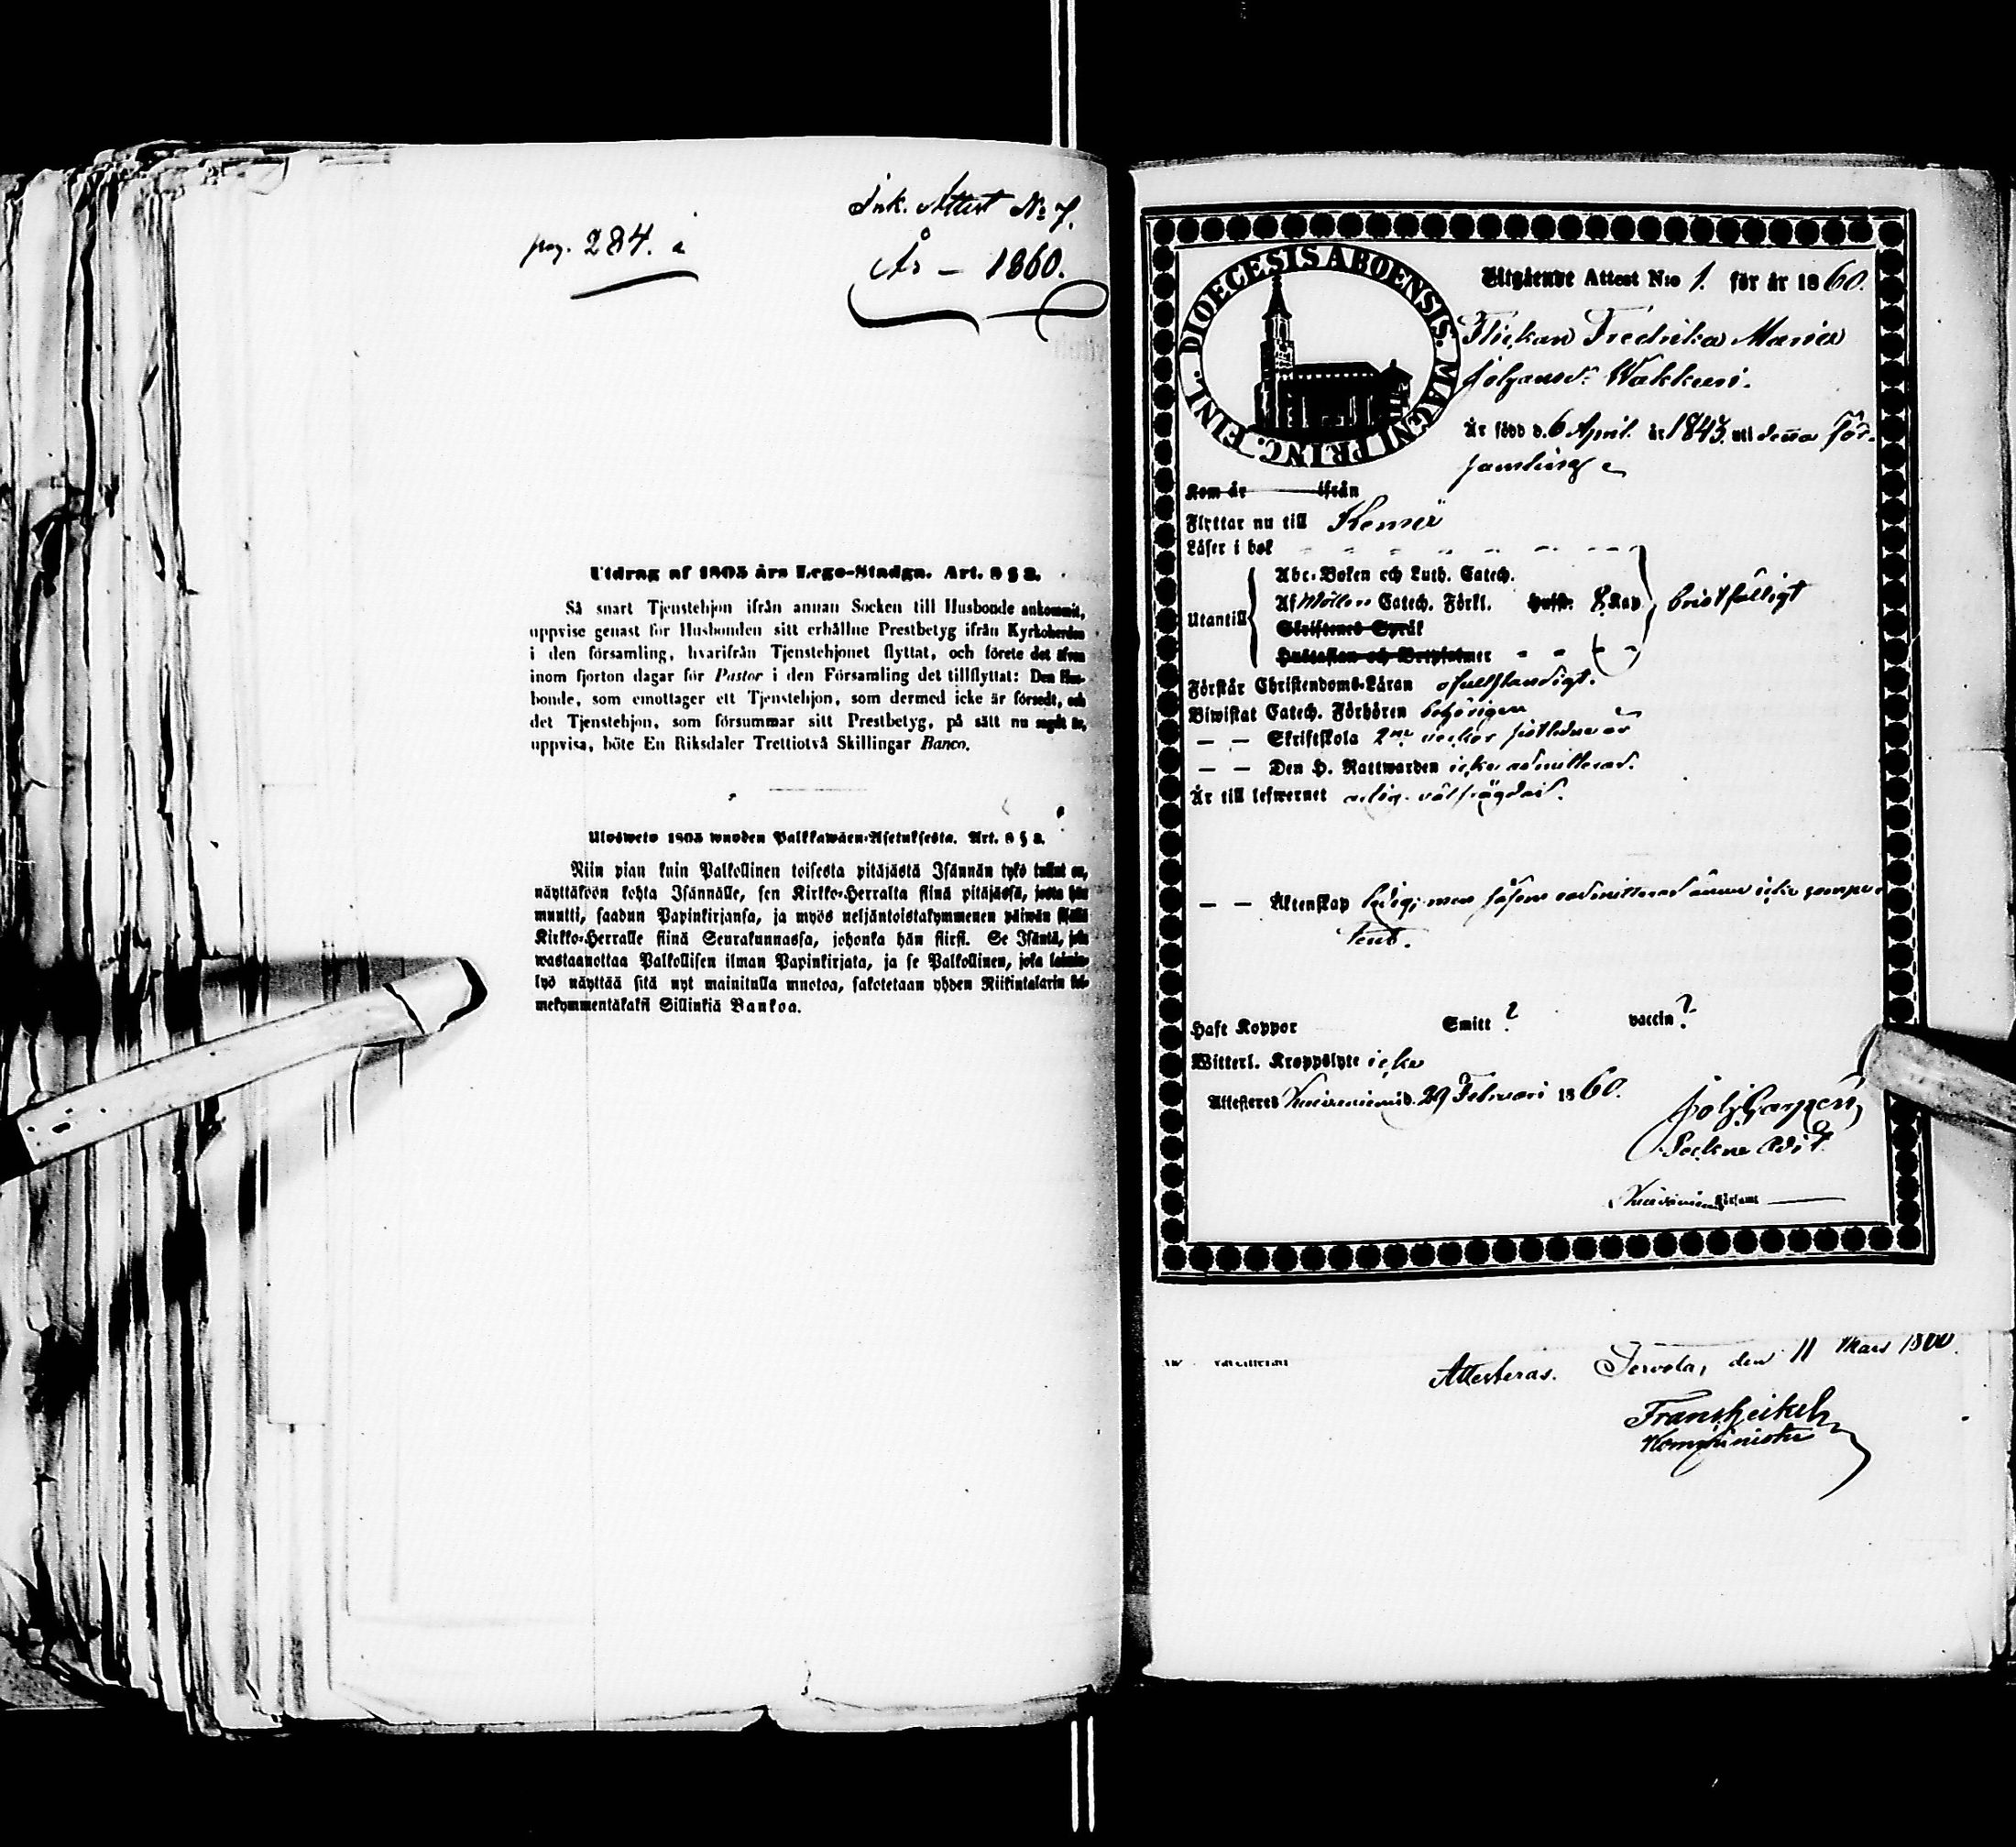 Ink. Attest No 7.
pag. 284.
År – 1860.
Utdrag af 1805 års Lego-Stadga. Art. 8 § 3.
Så snart Tjenstehjon ifrån annan Socken till Husbonde ankommit,
uppvise genast för Husbonden sitt erhållne Prestbetyg ifrån Kyrkoherden
i den församling, hvarifrån Tjenstehjonet flyttat, och förete det äfven
inom fjorton dagar för Pastor i den Församling det tillflyttat: Den Hus-
bonde, som emottager ett Tjenstehjon, som dermed icke är försedt, och
det Tjenstehjon, som försummar sitt Prestbetyg, på sätt nu sagdt är,
uppvisa, böte En Riksdaler Trettiotvå Skillingar Banco.
Ulosweto 1805 wuoden Palkkawäen-Asetuksesta. Art. 8 § 3.
Niin pian kuin Palkollinen toisesta pitäjästä Isännän tykö tullut on,
näyttäköön kohta Isännälle, sen Kirkko-Herralta siinä pitäjässä, josta hän
muutti, saadun Papinkirjansa, ja myös neljäntoistakymmenen päiwän sisällä
Kirkko-Herralle siinä Seurakunnassa, johonka hän siirsi. Se Isäntä, joka
wastaanottaa Palkollisen ilman Papinkirjata, ja se Palkollinen, joka laimin-
lyö näyttää sitä nyt mainitulla muotoa, sakotetaan yhden Riikintalarin kol-
mekymmentäkaksi Sillinkiä Bankoa.
DIOECESIS ABOENSIS. MAGNI PRINC. FINL.
Utgående Attest N:o 1. för år 1860.
Flickan Fredrika Maria
Johansd:r Wakkuri.
Är född d. 6 April. år 1843. uti denna för-
samling
Kom år ifrån
Flyttar nu till Kemi
Läser i bok
Abc-Boken och Luth. Catech.
Utantill Af Möllers Catech. Förkl. 8. Kap bristfälligt
Skriftenes Språk
Hustaflan och Botpsalmer
Förstår Christendoms-Läran ofullständigt.
Biwistat Catech. Förhören behörigen
— — Skriftskola 2ne veckor sistledne år
— — Den H. Nattwarden icke admitterad.
Är till lefwernet välfrägdad.
— — Äktenskap ledig; men såsom oadmitterad ännu icke compe-
tent.
Haft Koppor Smitt ? vaccin ?
Witterl. Kroppslyte icke
Attesteras Kuivaniemi d. 29 Februari 1860.
Attesteras. Tervola, den 11 Mars 1860.
Frans Heikel
Komminister